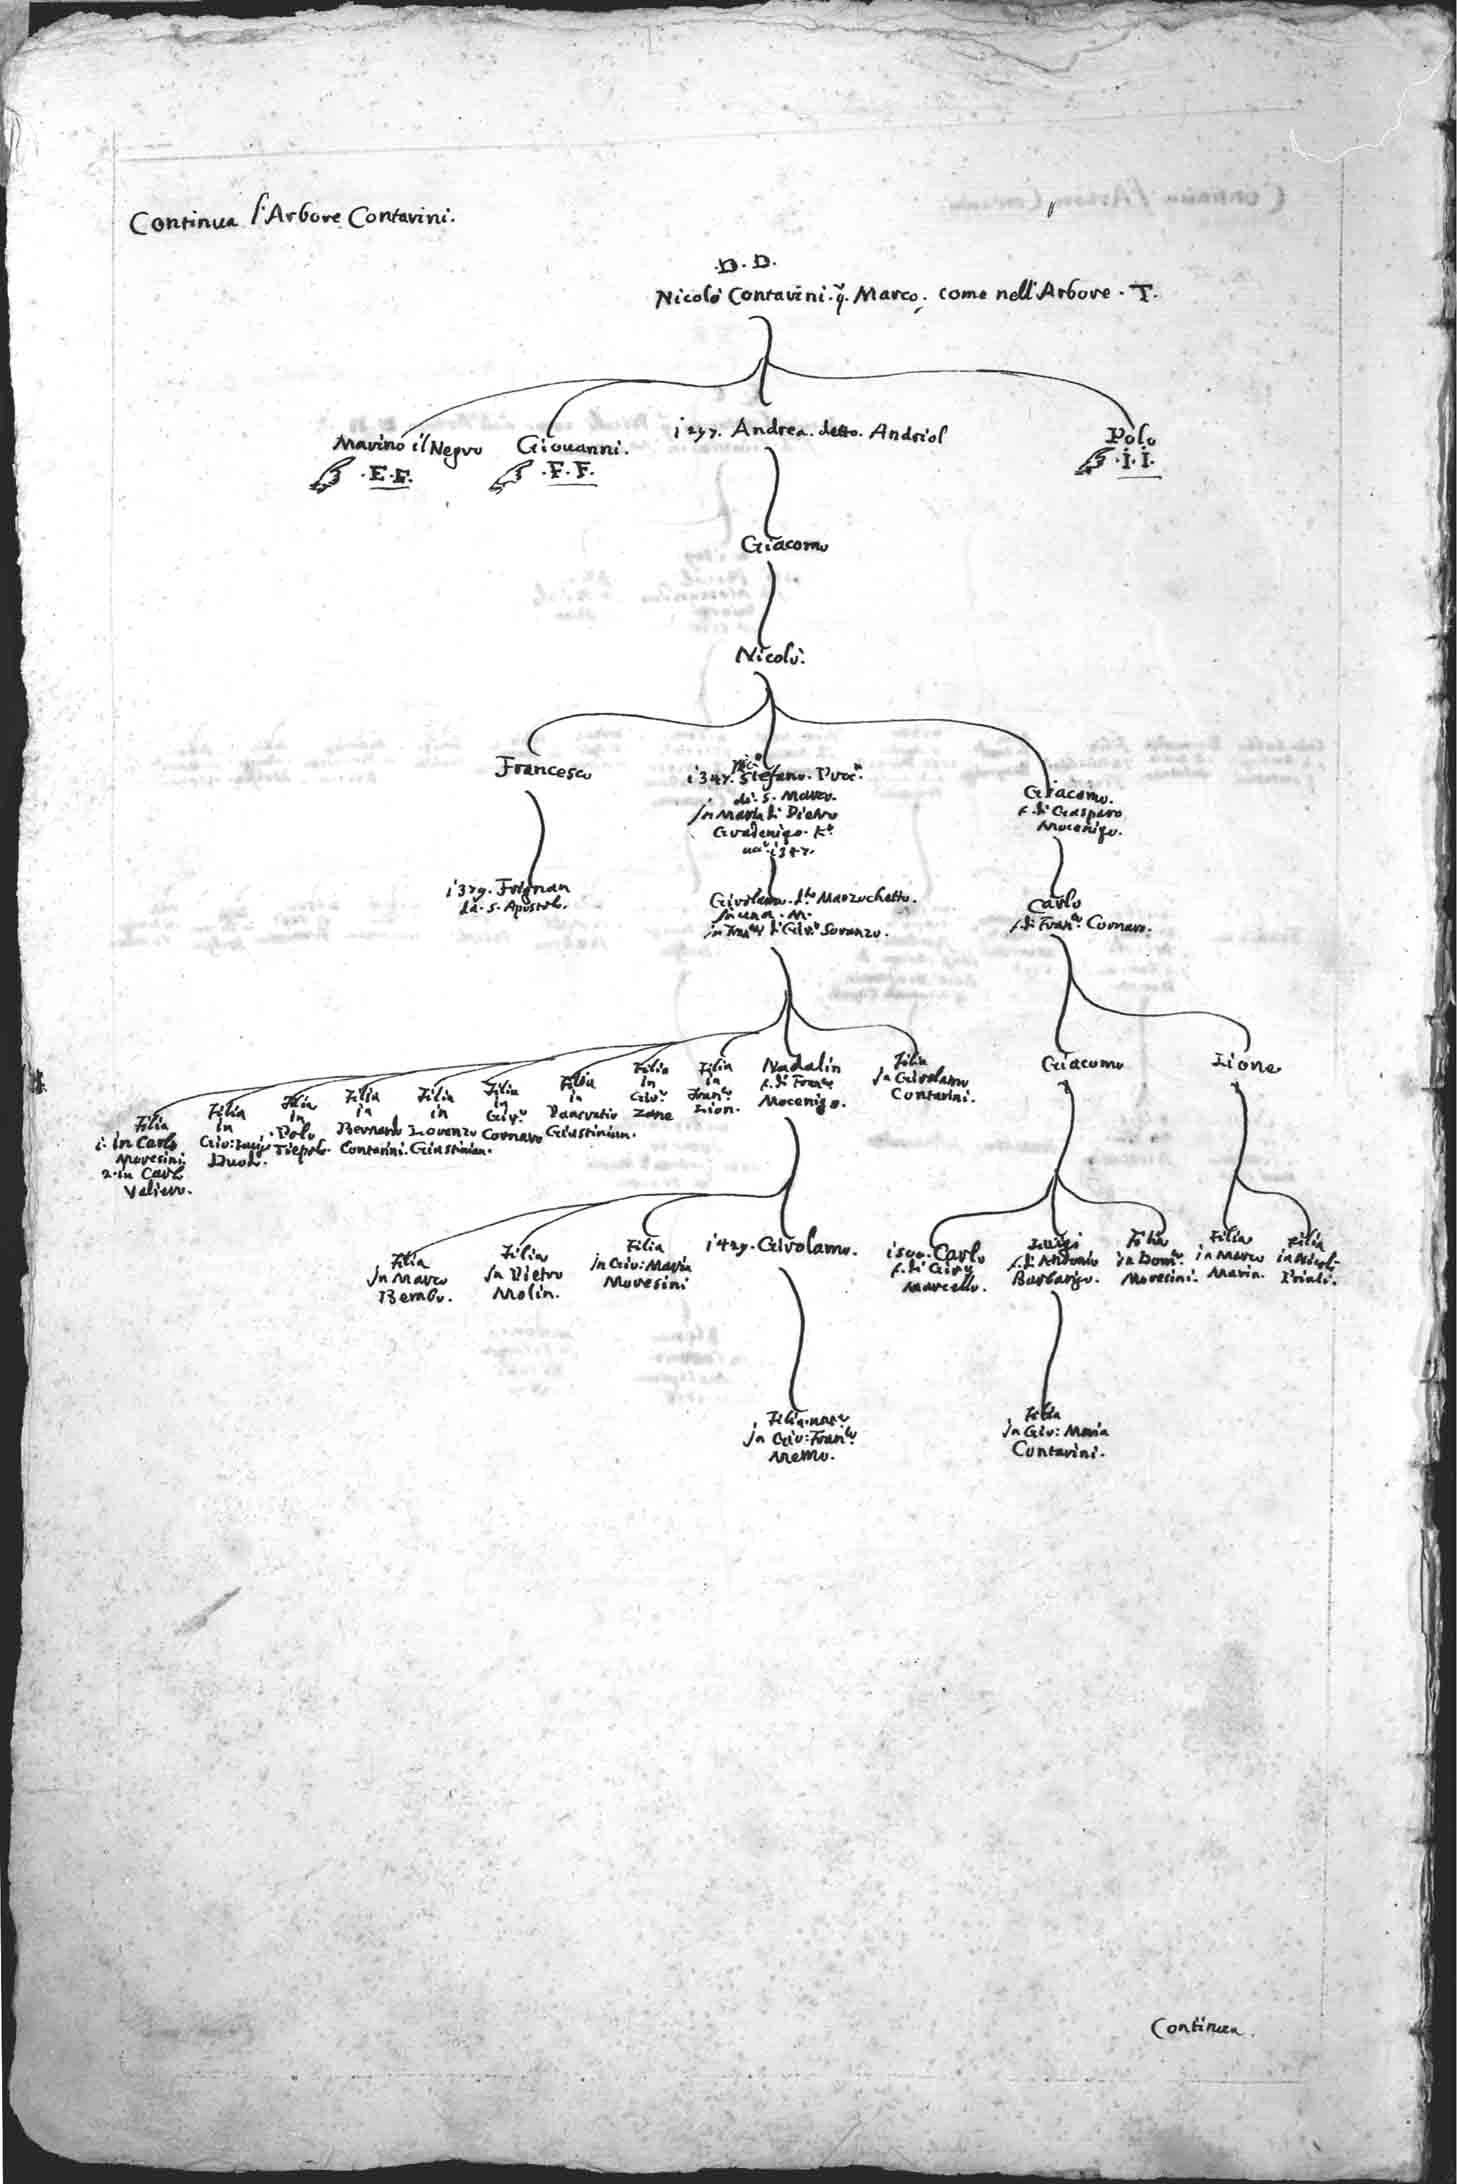 Continua l'Arbore Contarini.
D. D.
Nicolò Contarini. q. Marco. come nell'Arbore. T.
Marino il Negro
E. E.
Giovanni.
F. F.
1297. Andrea. detto. Andriol
Polo
I. I.
Giacomo
Nicolò.
Francesco
1347. Stefano. Proc.r
di S. Marco.
in Maria di Pietro
Gradenigo. K.r
1347.
Giacomo.
f. di Gasparo
Mocenigo.
1379. Frignan
da. S. Apostol.
Girolamo. d.to Marzochetto.
in Fran.ca di Gir.mo Soranzo.
Carlo
f. di Fran.co Cornaro.
Filia
1. in Carlo
Moresini
2. in Carlo
Valiero.
Filia
in
Gio: Luigi
Duodo.
Filia
in
Polo
Tiepolo.
Filia
in
Bernardo
Contarini.
Filia
in
Lorenzo
Giustinian.
Filia
in
Gir.o
Cornaro
Filia
in
Pancratio
Giustinian.
Filia
in
Gio.
Zane
Filia
in
Fran.co
Lion.
Nadalin
f. di Fran.co
Mocenigo.
Filia
in Girolamo
Contarini.
Giacomo
Lione
Filia
in Marco
Bembo.
Filia
in Pietro
Molin.
Filia
in Gio: Maria
Moresini
1429. Girolamo.
1500. Carlo
f. di
Marcello.
Luigi
f. di Antonio
Barbarigo.
Filia
in Dom.co
Moresini.
Filia
in Marco
Marin.
Filia
in Nicolò
Priuli.
Filia nat.
in Gio: Fran.co
Memo.
Filia
in Gio: Maria
Contarini.
Continua.